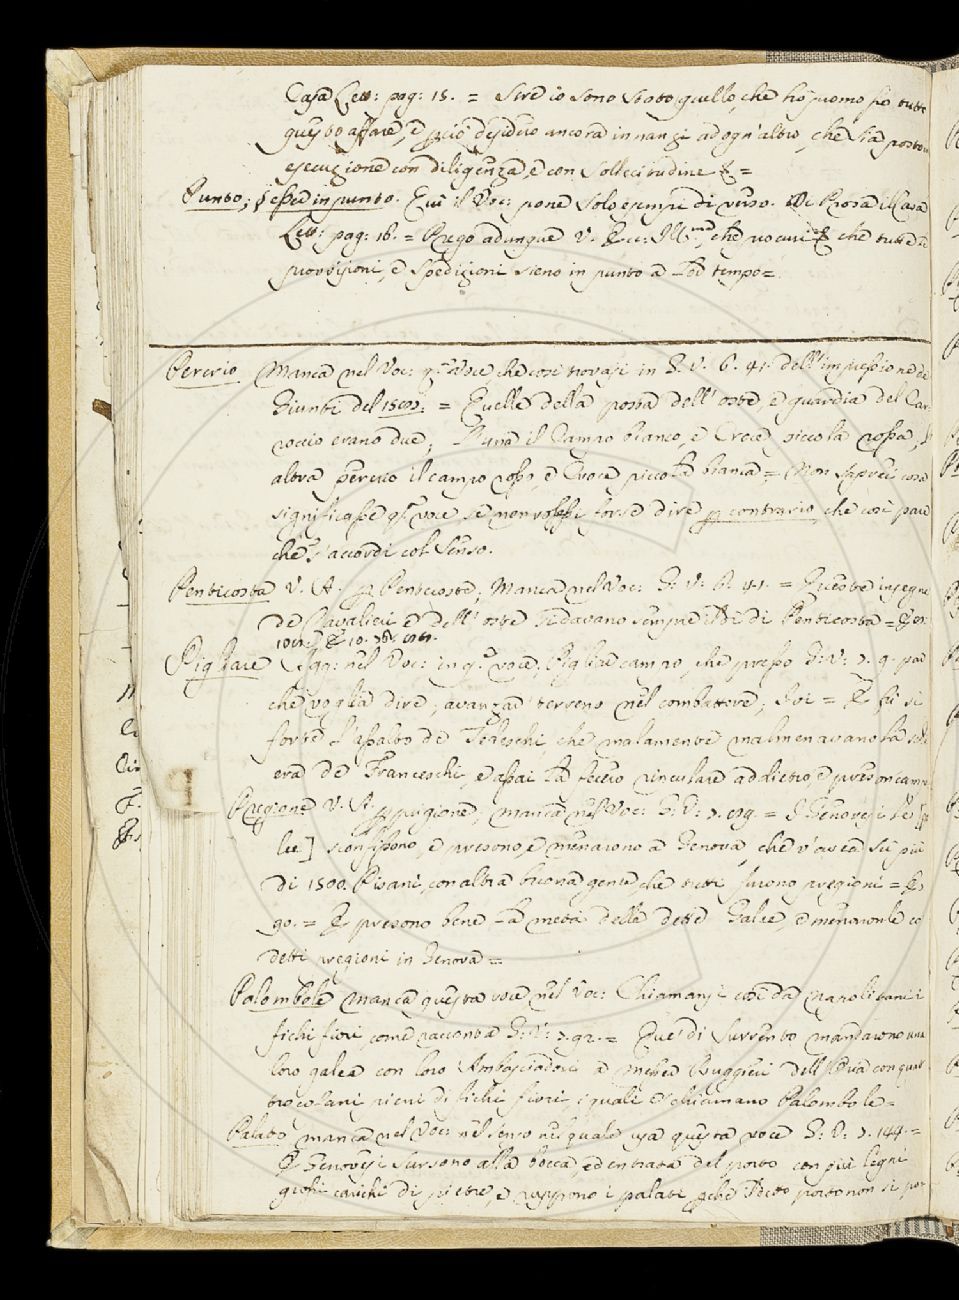 Casa Lett: pag: 15. = Sere io sono stato quello, che ho promo so tutto
questo affare, e pciò desidero ancora innanzi ad ogn'altro, che sia posto in
esecuzione con diligenza, e con sollecitudine &=
Punto; esser in punto. Qui il Voc: pone solo esempi di verso. Di Prosa il Casa
Lett: pag: 16. = Prego adunque V. Ecc: Illma, che procuri che tutte le
provvisioni, e spedizioni sieno in punto a tal tempo=
Percrio Manca nel Voc: qa Voce che così trovasi in G. V. 6. 41. dell'impressione de
Giunti del = Quelle della posta dell'oste, e guardia del Car-
roccio erano due; l'una il Campo bianco, e Croce piccola rossa, l'
altra percrio il campo rosso, e Croce piccola bianca = Non saprei cosa
significasse qa voce se non volesse forse dire p contrario, che così pare
che s'accordi col senso.
Penticosta V. A. p Pentecoste; Manca nel Voc: G: V: 6. 41. = Queste insegne
de Cavalieri e dell'oste si davano sempre il Dì di Penticosta =
Pigliare Agg: nel Voc: in qa voce, Pigliare campo, che presso G: V: 7. 9. par
che voglia dire, avanzar terreno nel combattere; Ivi = E fu sì
forte l'assalto de Tedeschi, che malamente malmenavano la schi
era de Franceschi, e assai la fecero rinculare addietro, e preson campo
Pregione V. A. p prigione, manca nel Voc: G: V: 7. = I Genovesi le [ga
lee] sconfissono, e presono, e menarono a Genova, che v'avea su più
di 1500. Pisani, con altra buona gente che tutti furono pregioni =
90. = E presono bene la metà delle dette Galee, e menaronle co
detti pregioni in Genova =
Palombole manca questa voce nel Voc: Chiamansi così da Napolitani i
fichi fiori, come racconta G: V: 7. 92. = Que' di Surrento mandarono una
loro galea con loro Ambasciadori a messer Ruggieri dell'Oria con quat
tro cofani pieni di fichi fiori, i quali e' chiamano Palombole=
Palato manca nel Voc: nel senso nel quale usa questa voce G: V: 7. 144. =
E Genovesi sursono alla bocca, ed entrata del porto con più legni
grossi carichi di pietre, e ruppono i palati pche il detto porto non si po-